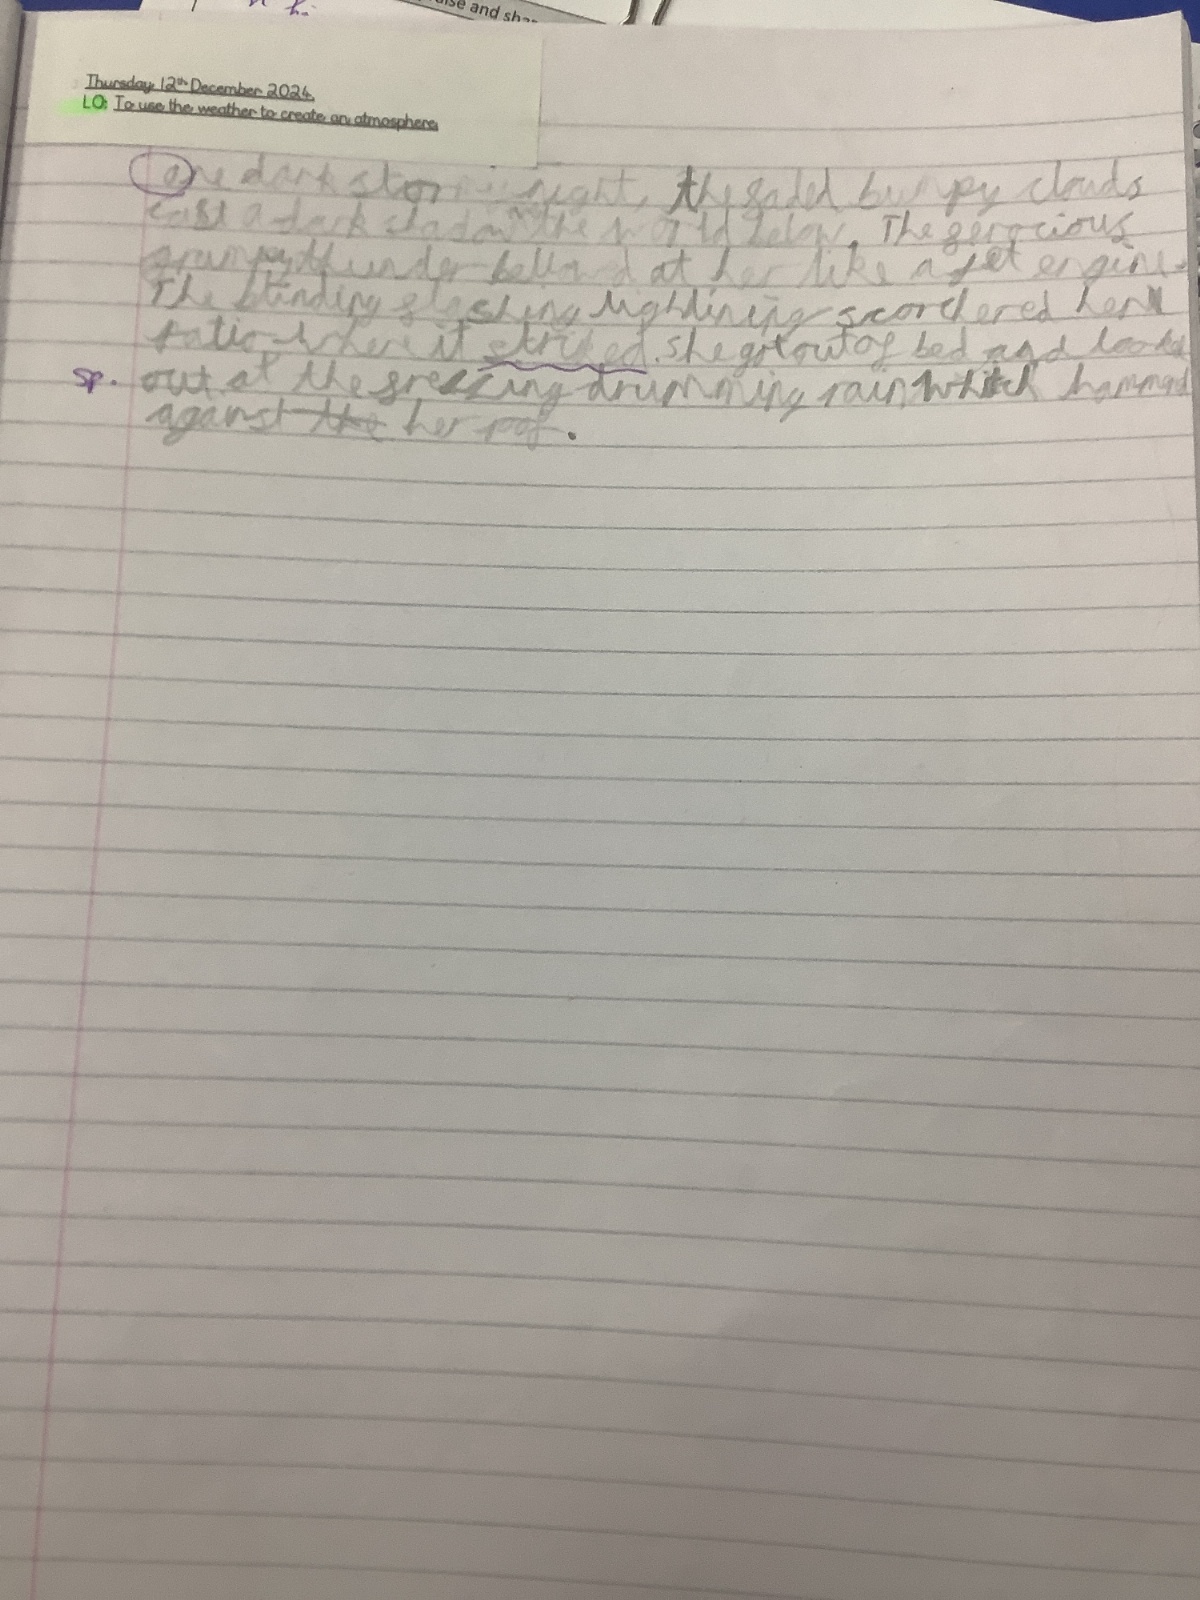 se and sha
Thursday 12th December 2024
LO: To use the weather to create an atmosphere
one dark night, the faded bumpy clouds
cast a dark shadow on the world below. The ferocious
grumpy thunder bellowd at her like a jet engine
The blinding flashing lightining scorchered her
patio where it striked. she got out of bed and looked
sp. out at the freezing drumming rain which hammed
against the her roof.